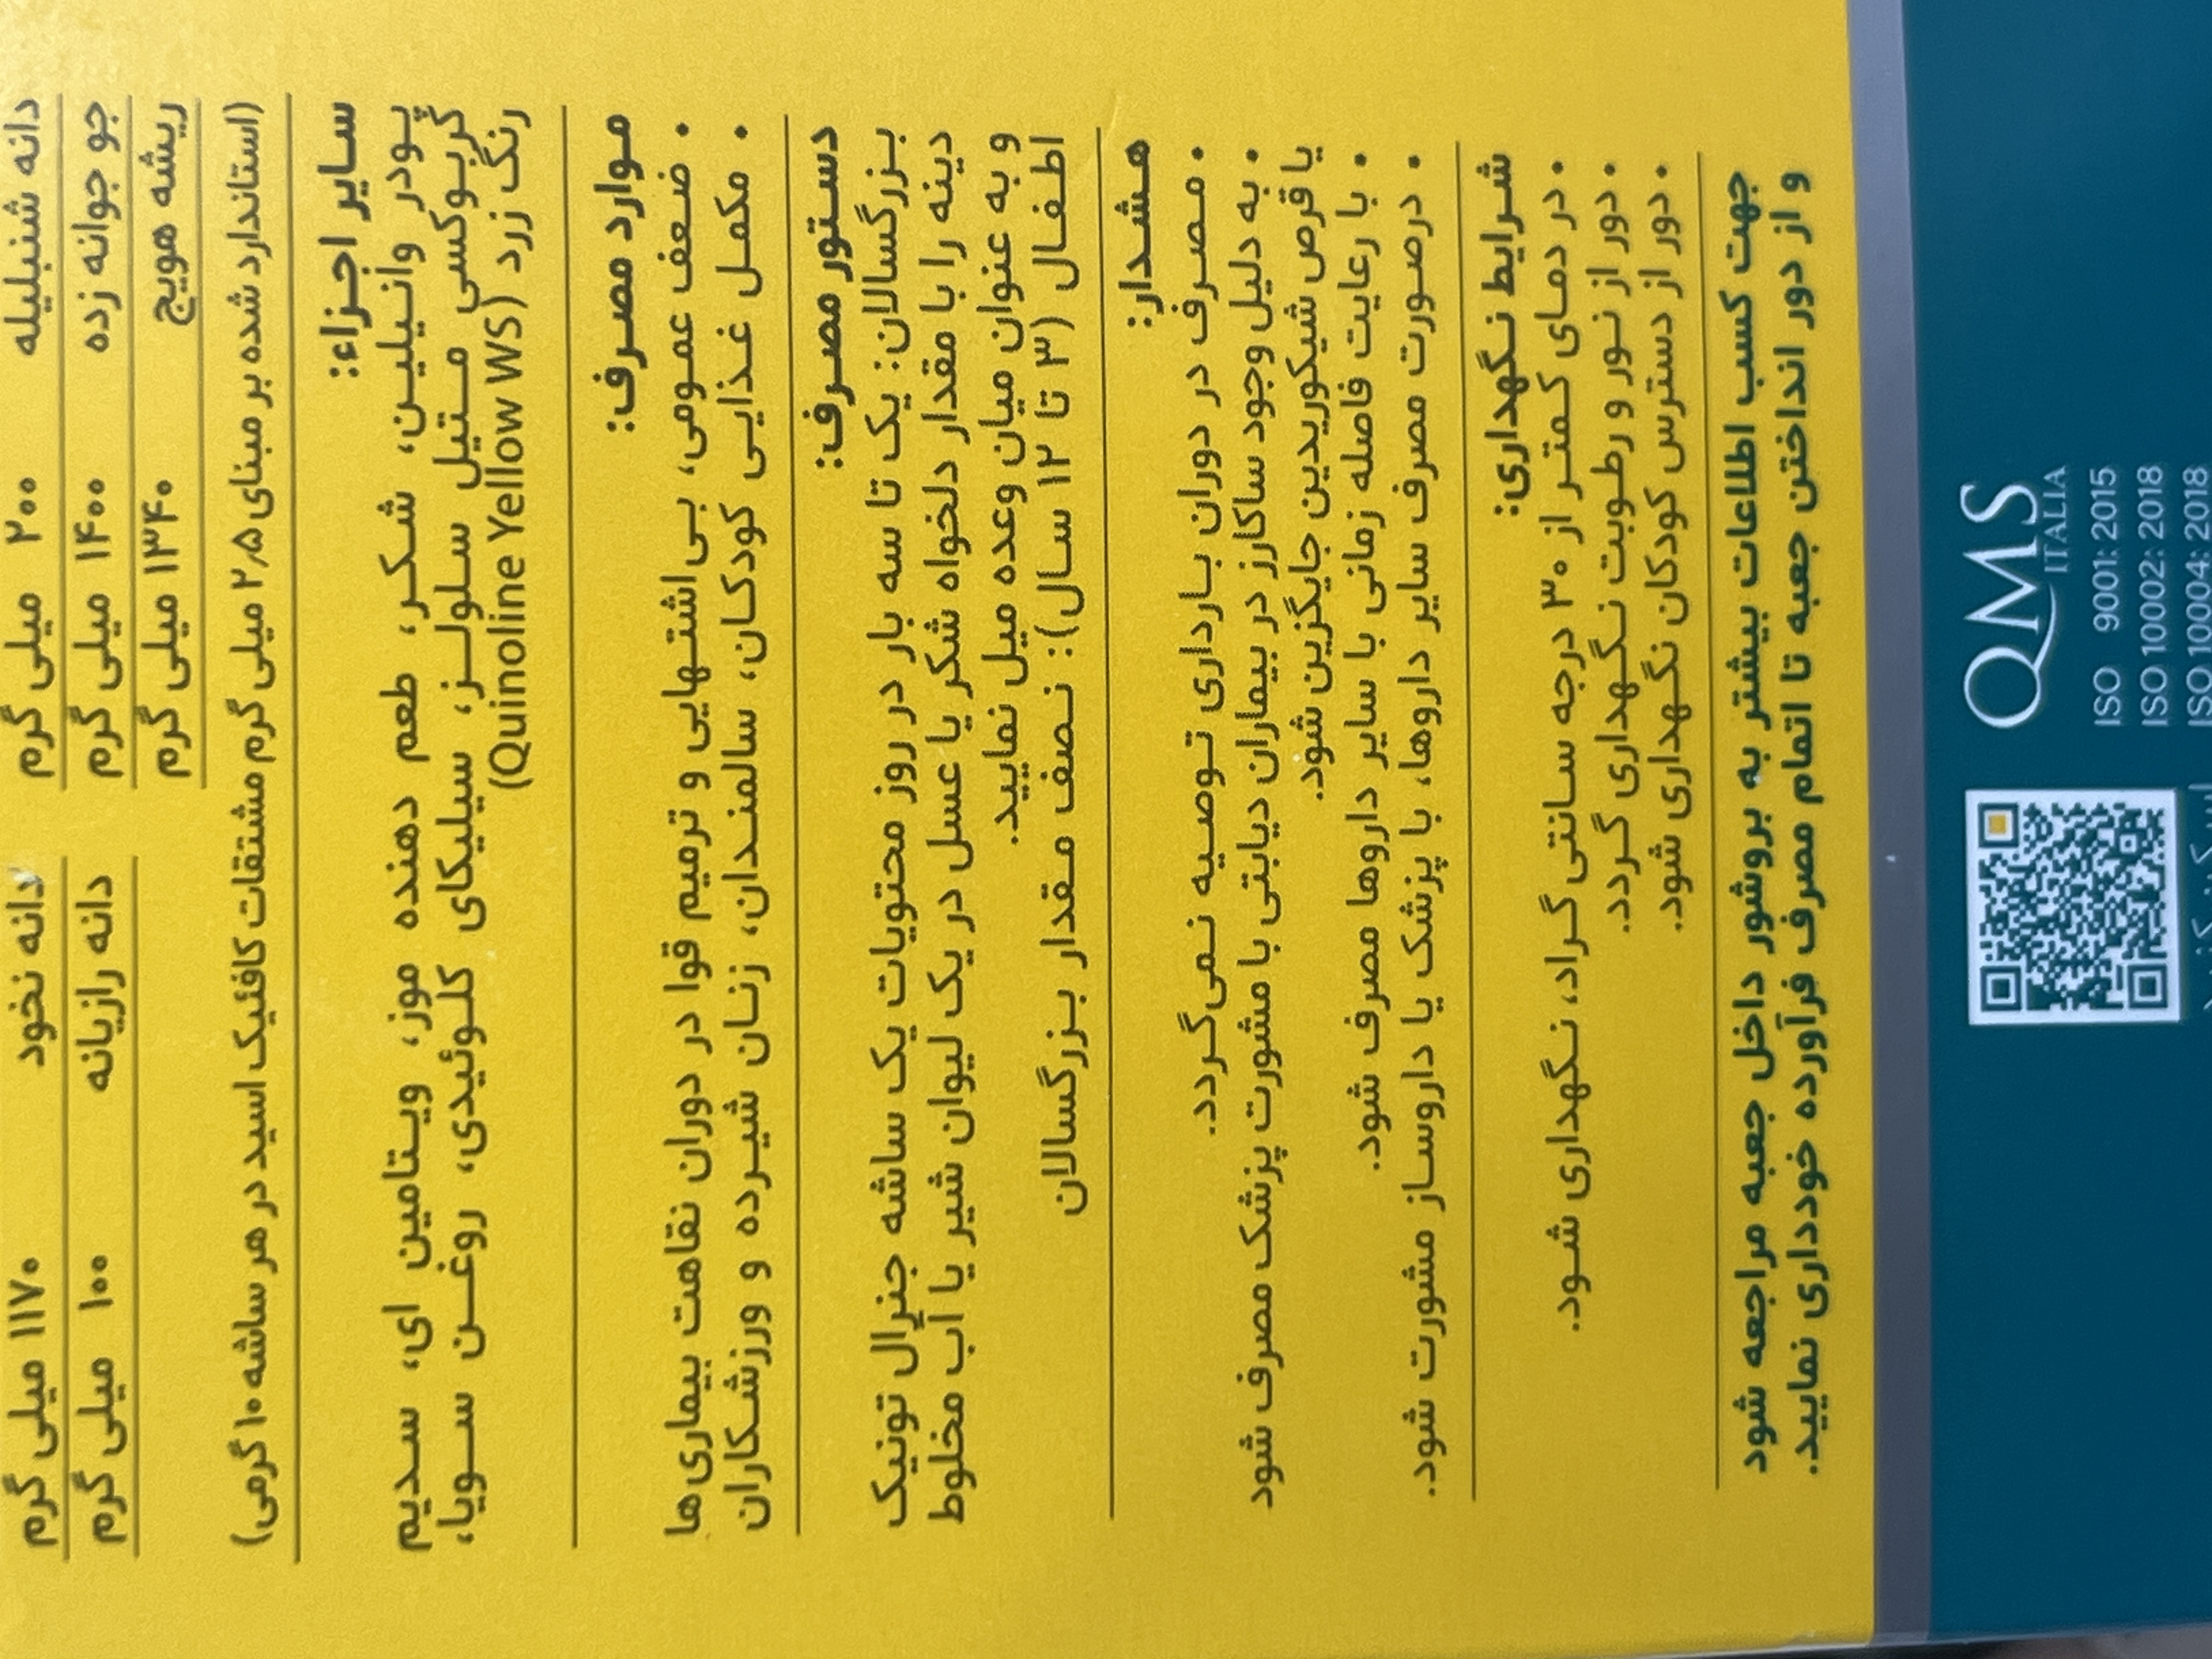 دانه شنبلیله ۲۰۰ میلی گرم دانه نخود ۱۱۷۰ میلی گرم
جو جوانه زده ۱۴۰۰ میلی گرم دانه رازیانه ۱۰۰ میلی گرم
ریشه هویج ۱۳۴۰ میلی گرم
(استاندارد شده بر مبنای ۲٫۵ میلی گرم مشتقات کافئیک اسید در هر ساشه ۱۰ گرمی)
سایر اجزاء:
پودر وانیلین، شکر، طعم دهنده موز، ویتامین ای، سدیم
کربوکسی متیل سلولز، سیلیکای کلوئیدی، روغن سویا،
رنگ زرد (Quinoline Yellow WS)
موارد مصرف:
• ضعف عمومی، بی‌اشتهایی و ترمیم قوا در دوران نقاهت بیماری‌ها
• مکمل غذایی کودکان، سالمندان، زنان شیرده و ورزشکاران
دستور مصرف:
بزرگسالان: یک تا سه بار در روز محتویات یک ساشه جنرال تونیک
دینه را با مقدار دلخواه شکر یا عسل در یک لیوان شیر یا آب مخلوط
و به عنوان میان وعده میل نمایید.
اطفال (۳ تا ۱۲ سال): نصف مقدار بزرگسالان
هشدار:
• مصرف در دوران بارداری توصیه نمی‌گردد.
• به دلیل وجود ساکارز در بیماران دیابتی با مشورت پزشک مصرف شود
یا قرص شیکوریدین جایگزین شود.
• با رعایت فاصله زمانی با سایر داروها مصرف شود.
• درصورت مصرف سایر داروها، با پزشک یا داروساز مشورت شود.
شرایط نگهداری:
• در دمای کمتر از ۳۰ درجه سانتی گراد، نگهداری شود.
• دور از نور و رطوبت نگهداری گردد.
• دور از دسترس کودکان نگهداری شود.
جهت کسب اطلاعات بیشتر به بروشور داخل جعبه مراجعه شود
و از دور انداختن جعبه تا اتمام مصرف فرآورده خودداری نمایید.
QMS
ITALIA
ISO 9001: 2015
ISO 10002: 2018
ISO 10004: 2018